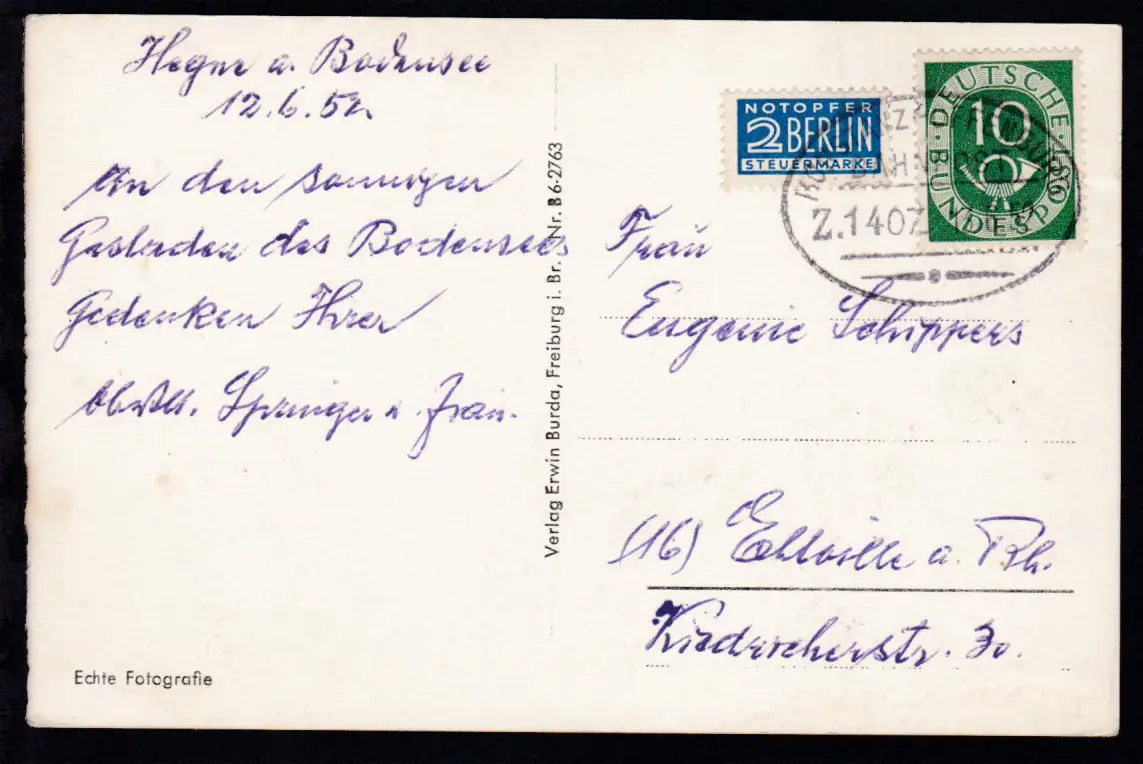 Hegne a. Bodensee
12.6.52
An den sonnigen
Gestaden des Bodensees
Gedenken Ihrer
Springer u. Frau.
Echte Fotografie
Verlag Erwin Burda, Freiburg i. Br. Nr. B 6-2763
NOTOPFER
2 BERLIN
STEUERMARKE
DEUTSCHE BUNDESPOST
10
KONSTANZ
BAHNPOST
Z.1407
Frau
Eugenie Schippers
(16) Eltville a. Rh.
Kiedricherstr. 30.